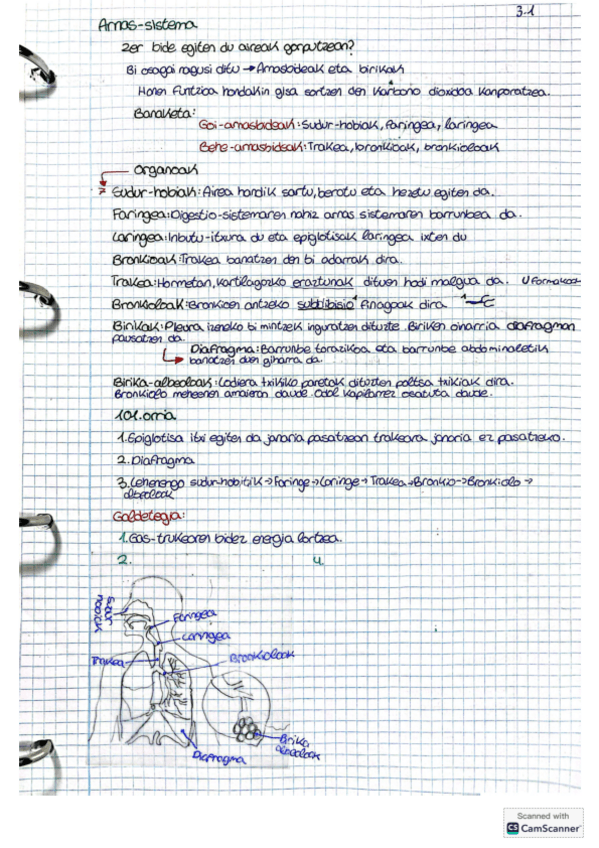 3.1
Arnas-sistema
Zer bide egiten du aireak gorputzean?
Bi osagai nagusi ditu → Arnasbideak eta birikak
Honen funtzioa hondakin gisa sortzen den karbono dioxidoa kanporatzea.
Banaketa:
Goi-arnasbideak: Sudur-hobiak, faringea, laringea
Behe-arnasbideak: Trakea, bronkioak, bronkioloak
Organoak
Sudur-hobiak: Airea hondik sartu, berotu eta hezetu egiten da.
Faringea: Digestio-sistemaren nahiz arnas sistemaren barrunbea da.
Laringea: Inbutu-itxura du eta epiglotisak laringea ixten du
Bronkioak: Trakea banatzen den bi adarrak dira.
Trakea: Hormetan, kartilagozko eraztunak dituen hodi malgua da. U formakoak
Bronkioloak: Bronkioen antzeko subdibisio finagoak dira
Birikak: Pleura izeneko bi mintzek inguratzen dituzte. Biriken oinarria diafragman
pausatzen da.
Diafragma: Barrunbe torazikoa eta barrunbe abdominaletik
banatzen duen giharra da.
Birika-albeoloak: Lodiera txikiko paretak dituzten poltsa txikiak dira.
Bronkiolo meheenen amaieran daude. Odol kapilarrez osatuta daude.
101.orria
1. Epiglotisa itxi egiten da janaria pasatzean trakeara janaria ez pasatzeko.
2. Diafragma
3. Lehenengo sudur-hobitik → Faringe → Laringe → Trakea → Bronkio → Bronkiolo →
albeoloak
Galdetegia:
1. Gas-trukearen bidez energia lortzea.
2. 4.
Sudur
hobiak
Faringea
Laringea
Trakea
Bronkioloak
Birika
albeoloak
Diafragma
Scanned with
CS CamScanner